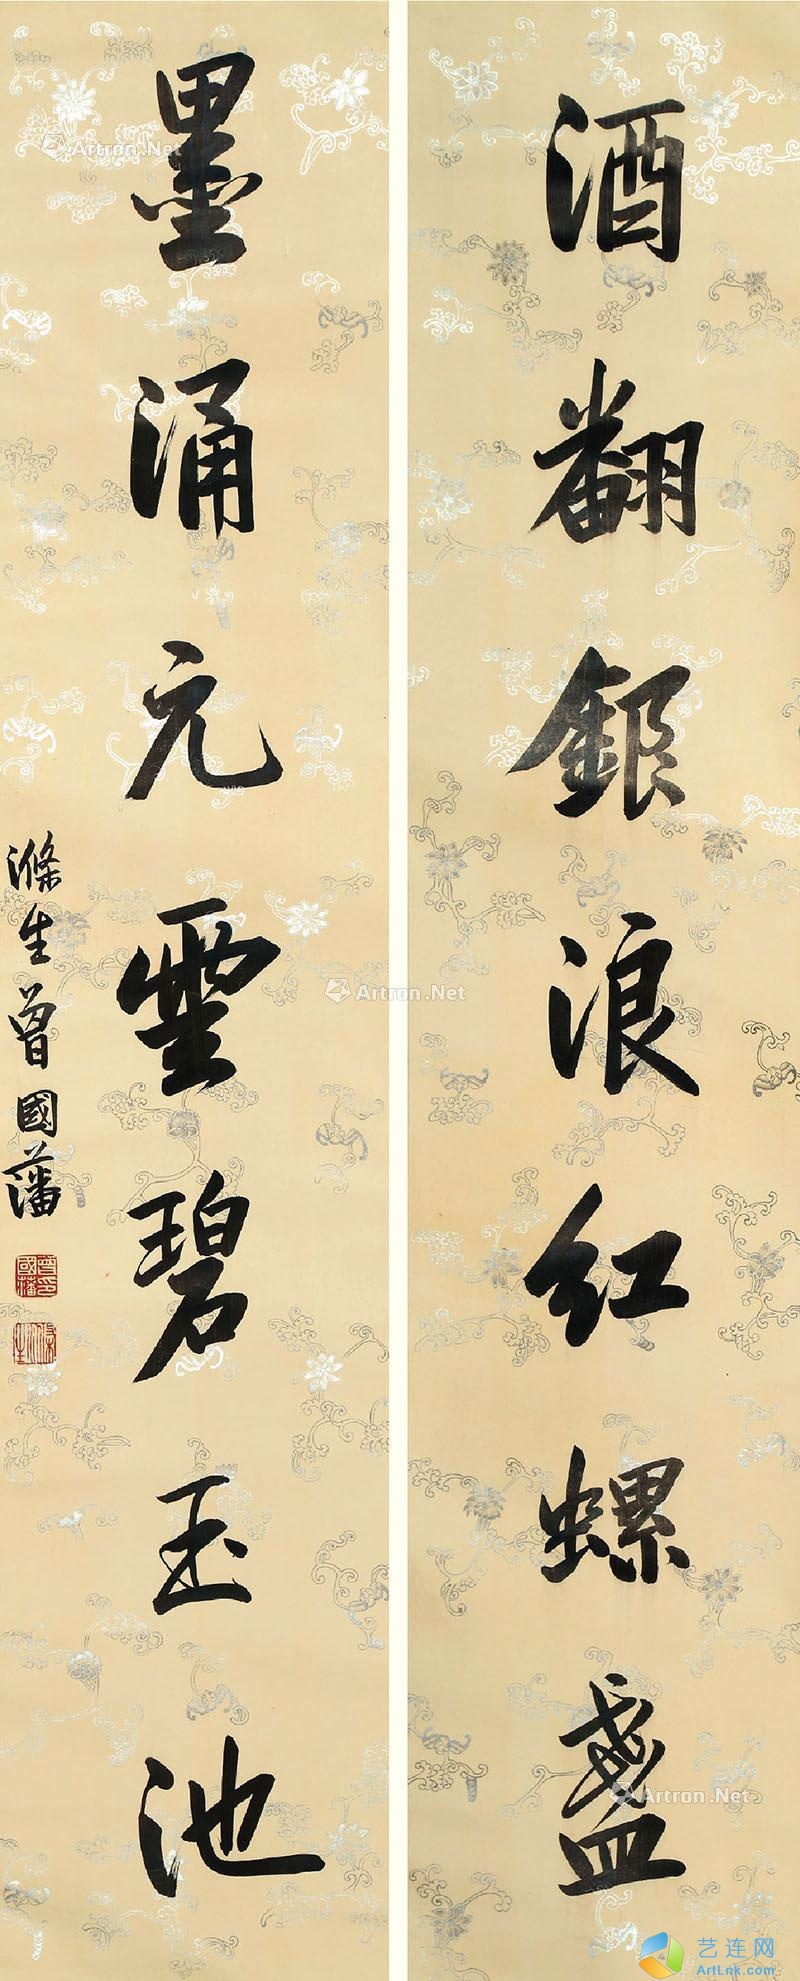 酒翻銀浪紅螺盞
墨涌元雲碧玉池
滌生曾國藩
曾印國藩
滌生
Artron.Net
Artron.Net
Artron.Net
艺连网
ArtLnk.com